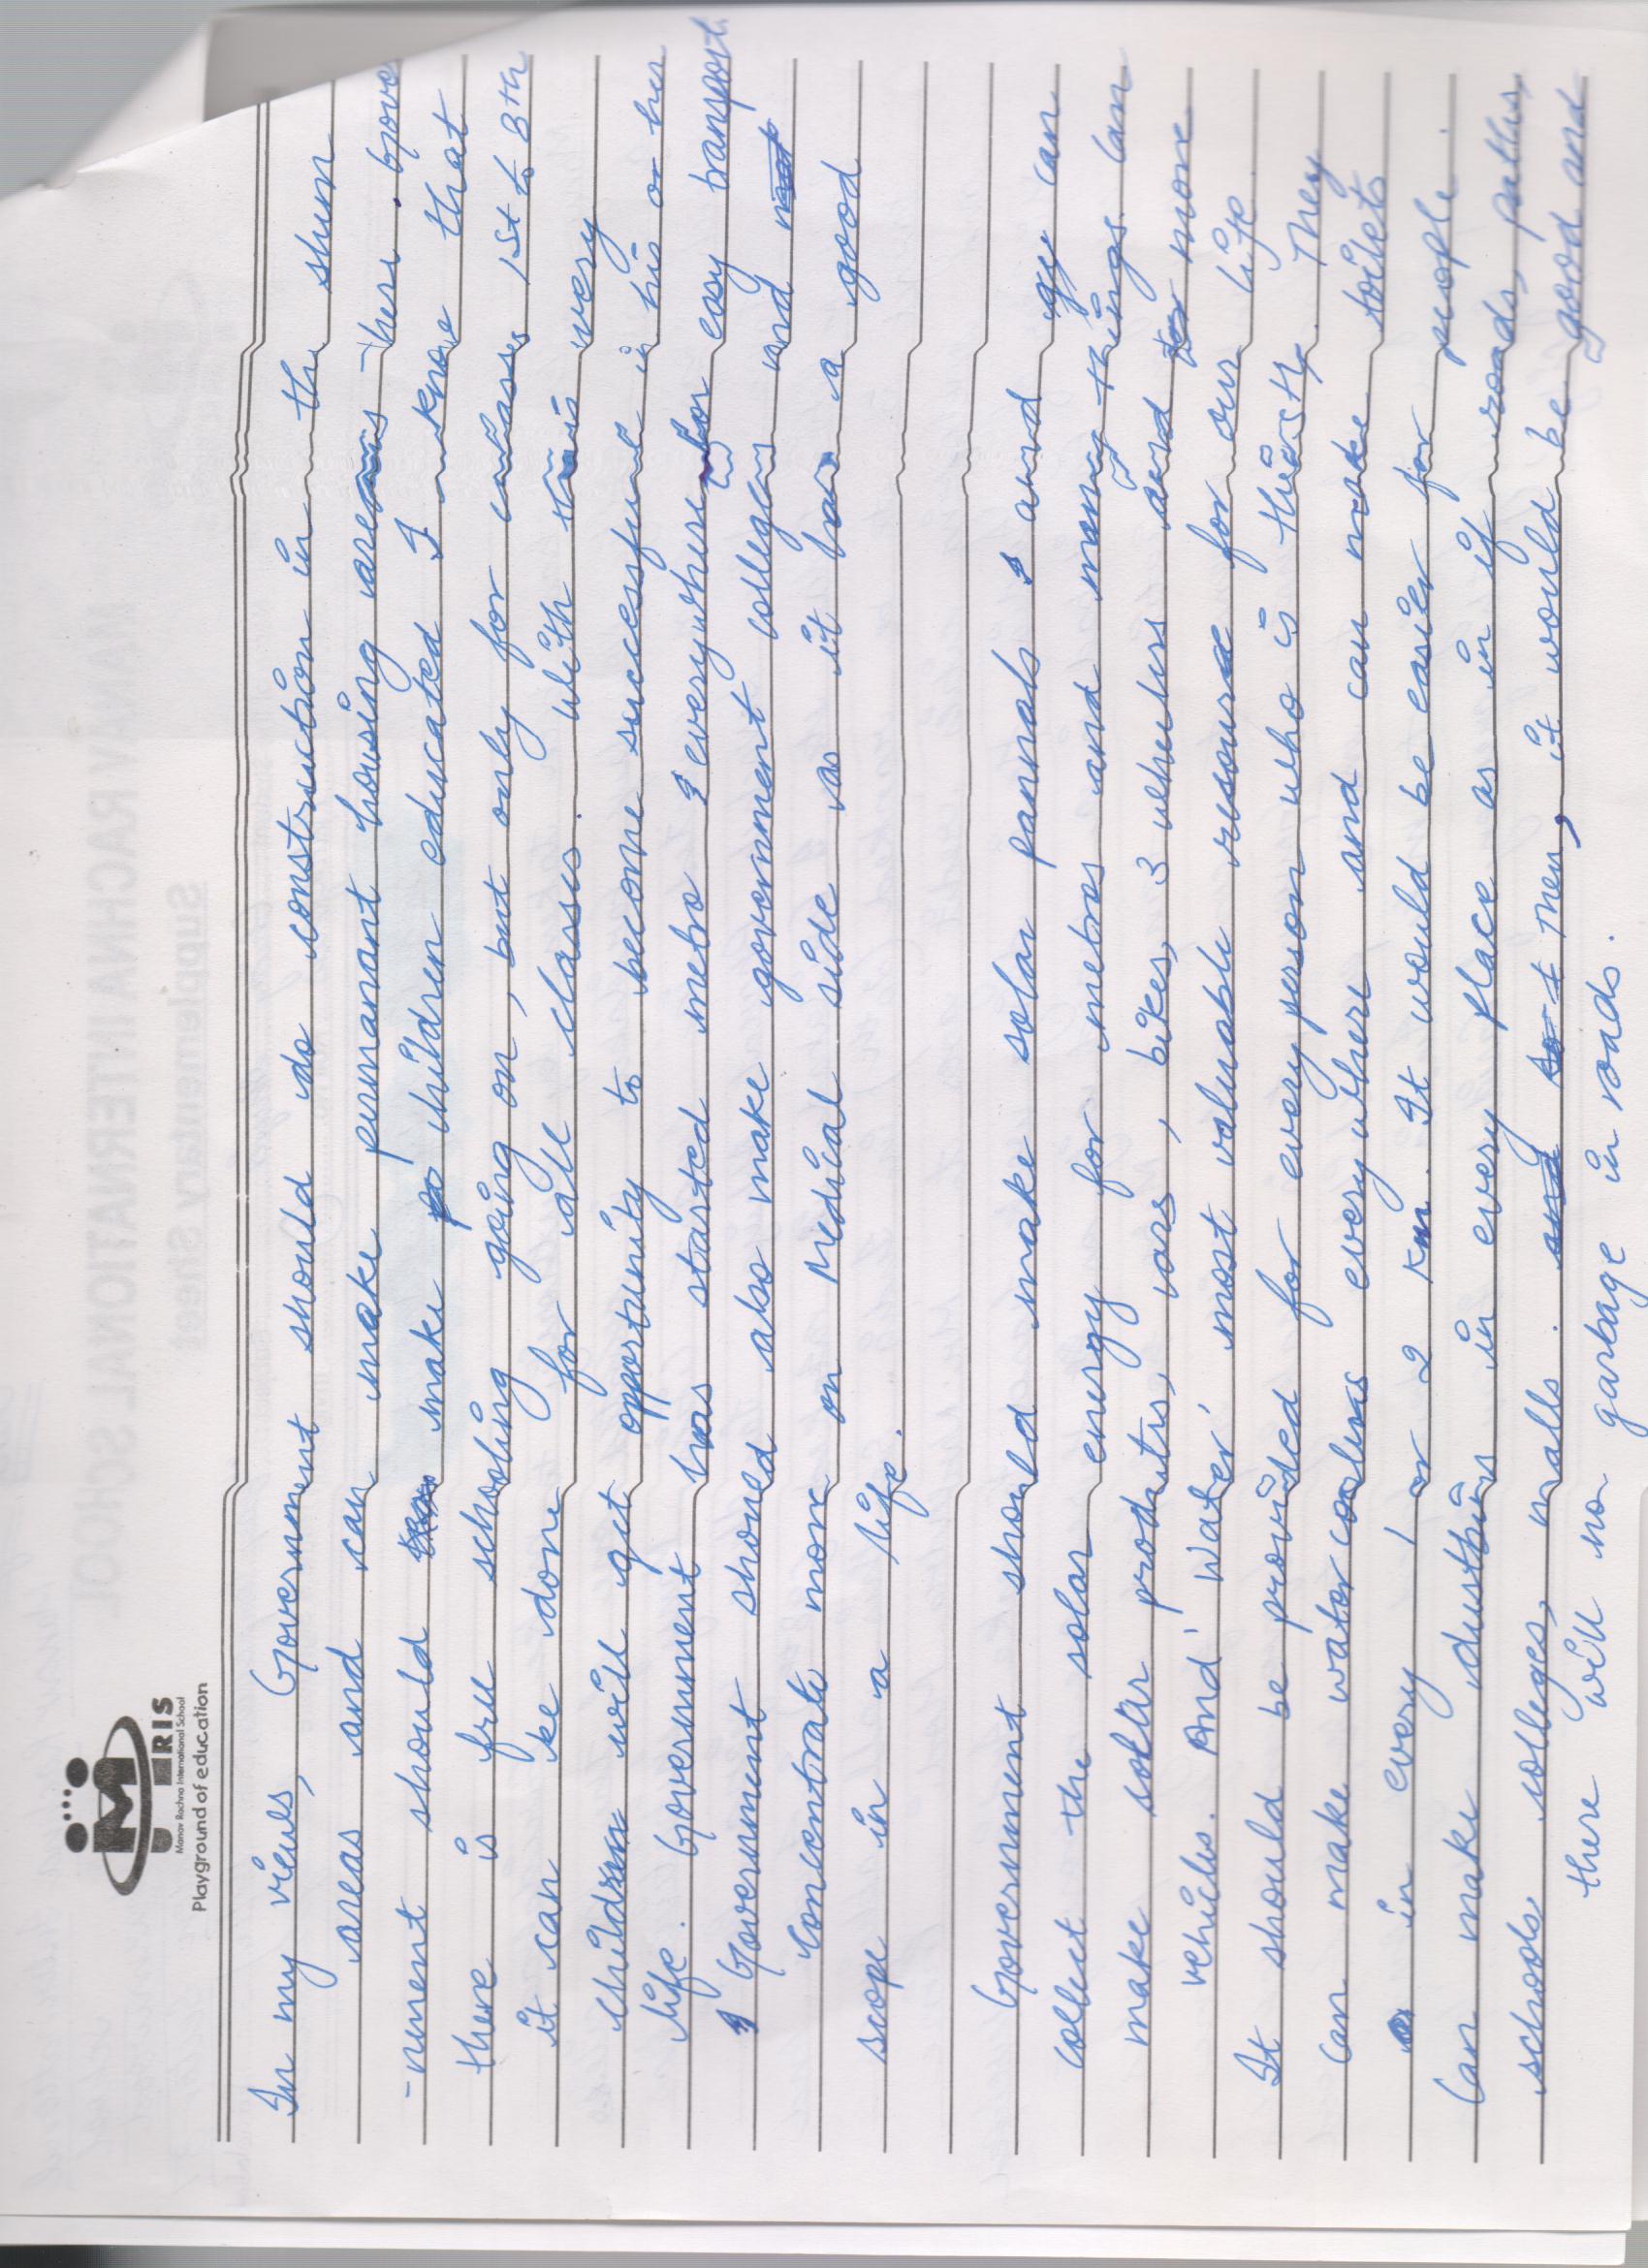 MRIS
Manav Rachna International School
Playground of education
In my views, Government should do construction in the slum
areas and can make permanant housing areas there. Gove
-rnment should make children educated I know that
there is free schooling going on, but only for classes 1st to 8th
it can be done for all classes. with this every
children will get opportunity to become successful in his or her
life. Government has started metro everywhere for easy transport.
Government should also make government colleges and
Concentrate more on Medical side as it has a good
scope in a life.
Government should make solar pannals and ge can
collect the solar energy for metros and many things. Can
make solar products, cars, bikes, 3 wheelers and more
vehicles. And 'Water' most valuable resource for our life.
It should be provided for every person who is thirsty. They
can make water coolers everywhere and can make toilets
in every 1 or 2 Km. It would be easier for people.
Can make dustbins in every place as in if roads, paths,
schools colleges, malls. Then, it would be good and
there will no garbage in roads.
MANAV RACHNA INTERNATIONAL SCHOOL
Supplementary Sheet